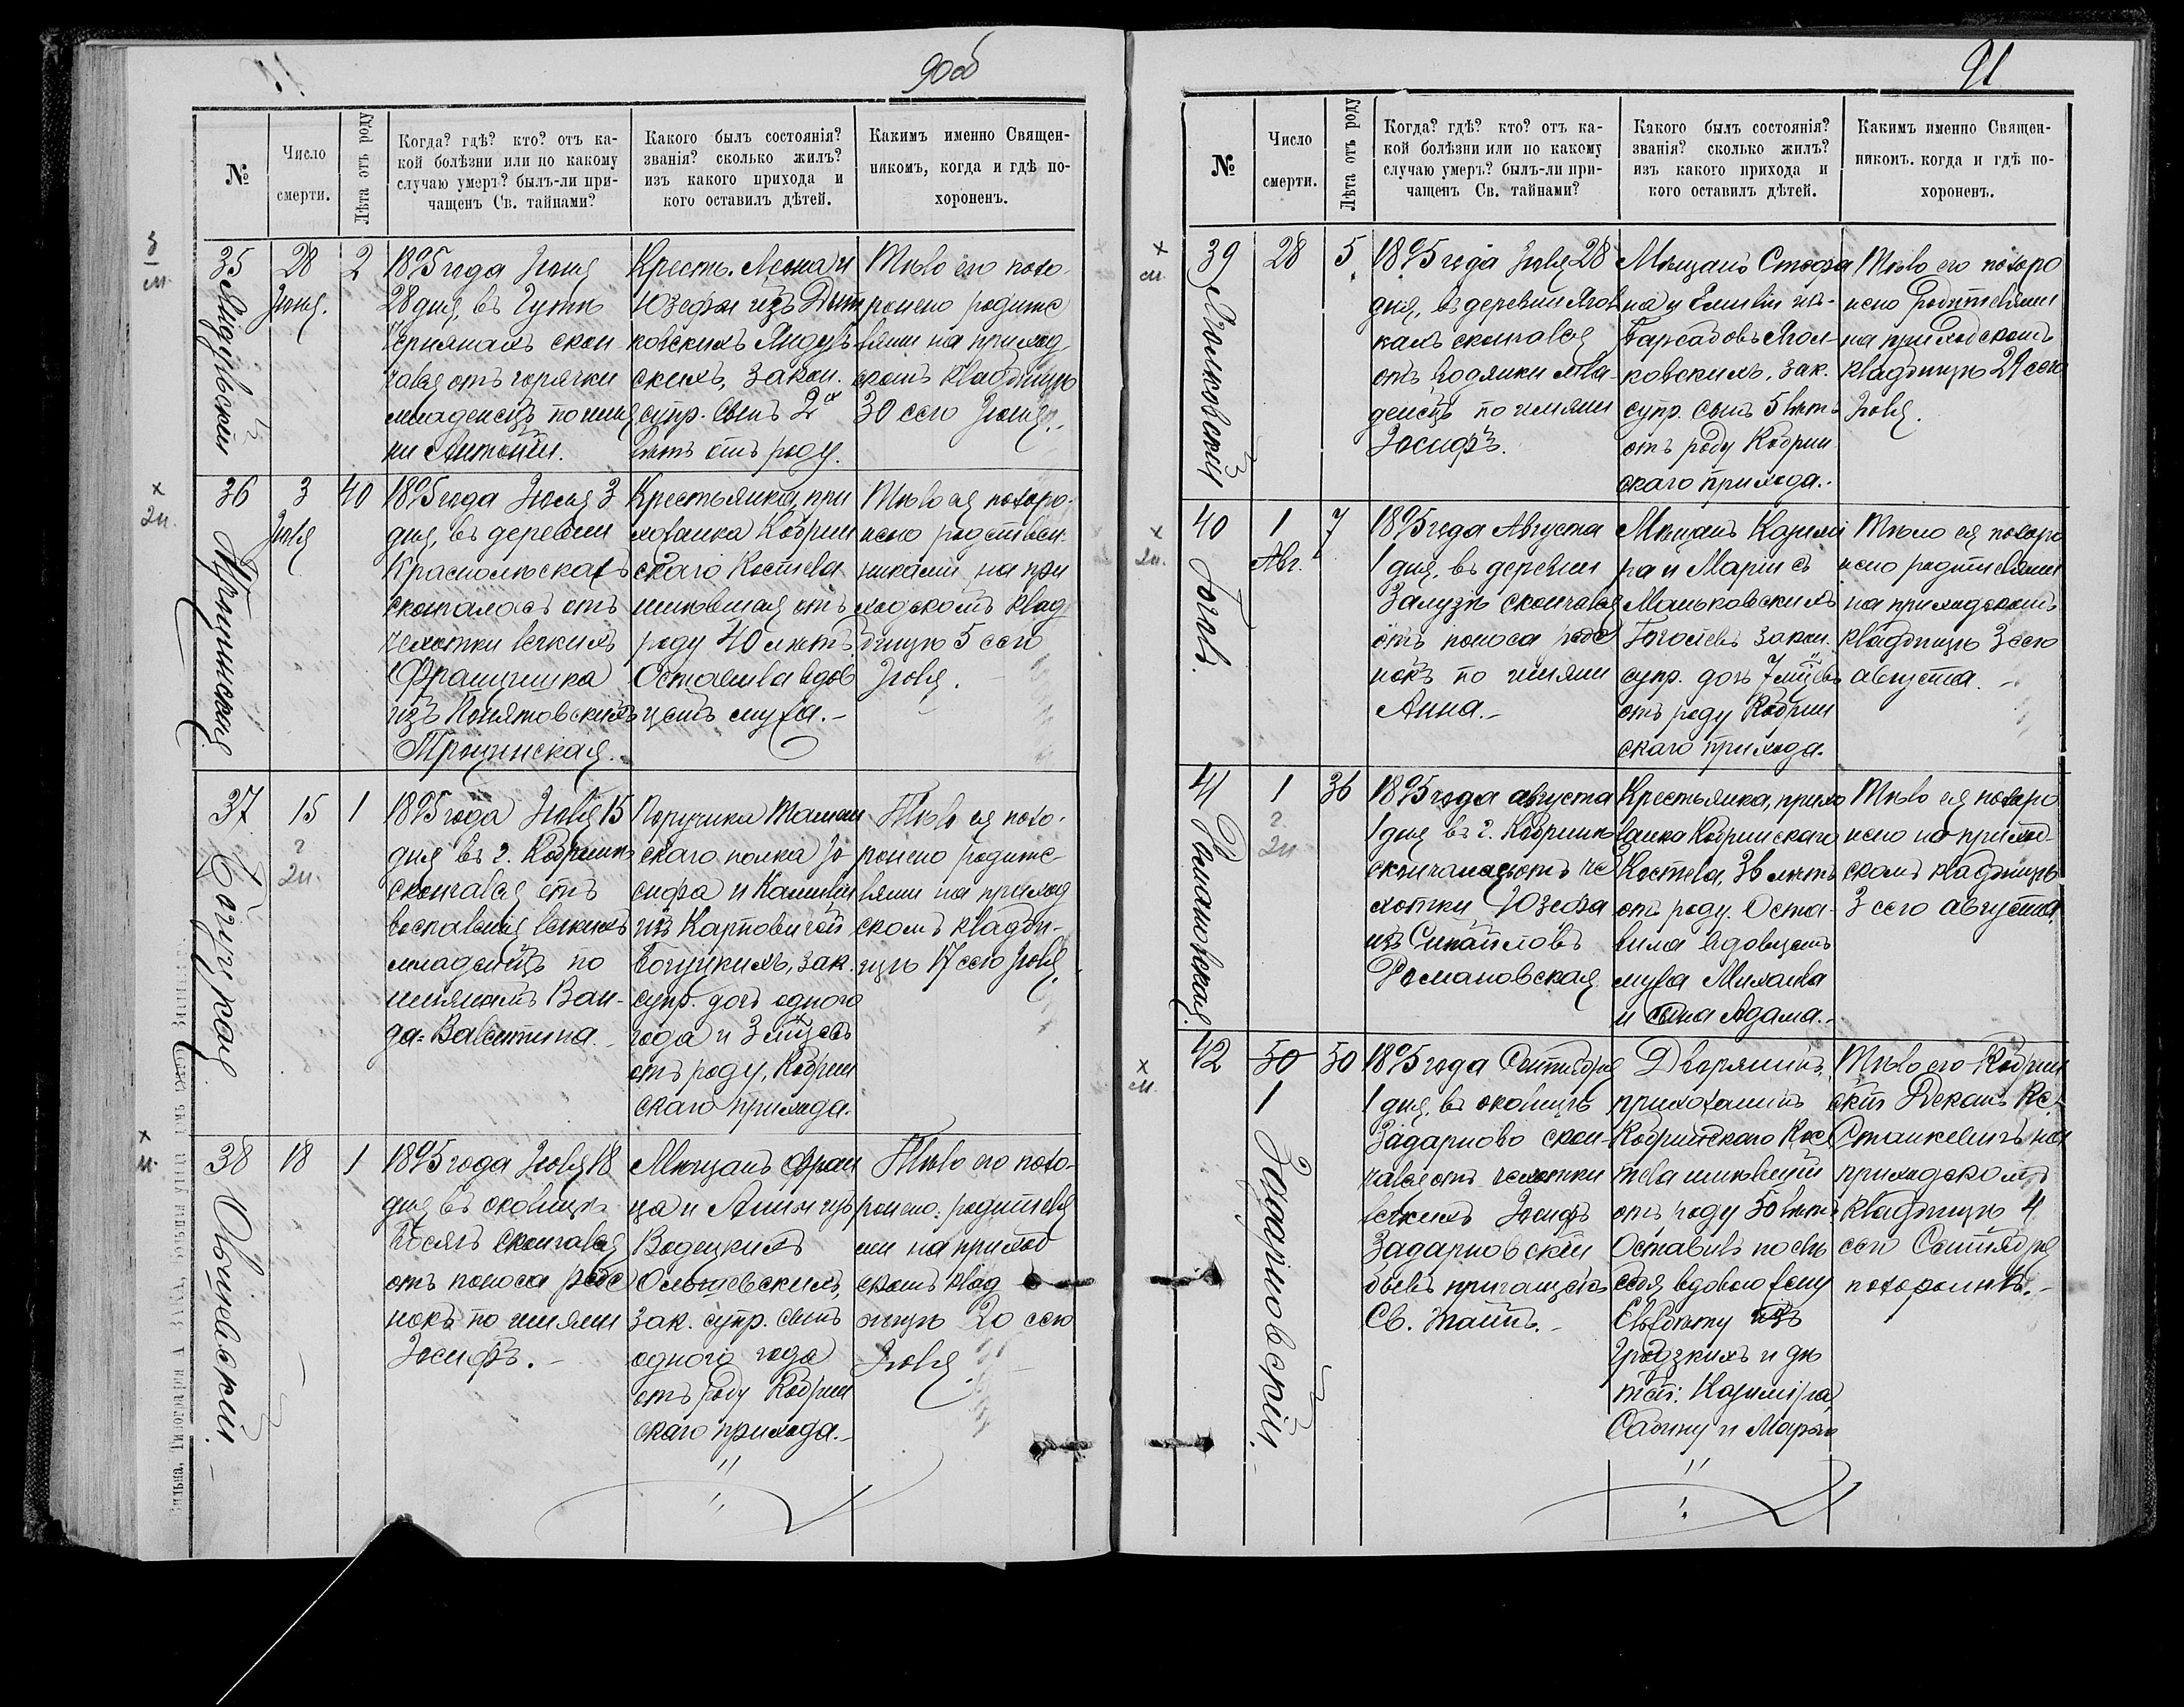 90 об
№
Число
смерти.
Лѣта отъ роду
Когда? гдѣ? кто? отъ ка-
кой болѣзни или по какому
случаю умеръ? былъ-ли при-
чащенъ Св. тайнами?
Какого былъ состоянія?
званія? сколько жилъ?
изъ какого прихода и
кого оставилъ дѣтей.
Какимъ именно Священ-
никомъ, когда и гдѣ по-
хороненъ.
35
28
Іюня.
2
1895 года Іюня
28 дня, въ
скон
чался отъ горячки
младенецъ по име
ни Антоній.
Кресть. Леона и
Юзефы изъ
ковскихъ
скихъ, закон.
супр. сынъ 2х
лѣтъ отъ роду.
Тѣло его похо-
ронено родите
лями на приход
скомъ кладбищѣ
30 сего Іюня.
36
Трощинская
3
Іюля
40
1895 года Іюля 3
дня, въ деревни
скончалась отъ
чахотки легкихъ
Францишка
изъ Понятовскихъ
Трощинская.
Крестьянка, при
хожанка Кобрин
скаго Костела
имѣвшая отъ
роду 40 лѣтъ.
Оставила вдов
цемъ мужа.-
Тѣло ея похоро-
нено родствен-
никами на при
ходскомъ клад
бищѣ 5 сего
Іюля.
37
Богуцкая
15
1
1895 года Іюля 15
дня въ г. Кобринѣ
скончался отъ
воспаленія легкихъ
младенецъ по
именамъ Ван-
да-Валентина.
Поручика Таман
скаго полка Іо
сифа и Камиліи
изъ Карповичей
Богуцкихъ, зак.
супр. дочь одного
года и 3 мцевъ
отъ роду, Кобрин
скаго прихода.
Тѣло ея похо-
ронено родите-
лями на приход
скомъ кладби-
щѣ 17 сего Іюля.
38
Ольшевскій
18
1
1895 года Іюля 18
дня въ околицѣ
скончался
отъ поноса ребе
нокъ по имени
Іосифъ.-
Мѣщанъ Фран
ца и Анны изъ
Водецкихъ
Ольшевскихъ,
зак. супр. сынъ
одного года
отъ роду Кобрин
скаго прихода.-
Тѣло его похо-
ронено родителя
ми на приход
скомъ клад
бищѣ 20 сего
Іюля
91
№
Число
смерти.
Лѣта отъ роду
Когда? гдѣ? кто? отъ ка-
кой болѣзни или по какому
случаю умеръ? былъ-ли при-
чащенъ Св. тайнами?
Какого былъ состоянія?
званія? сколько жилъ?
изъ какого прихода и
кого оставилъ дѣтей.
Какимъ именно Священ-
никомъ. когда и гдѣ по-
хороненъ.
39
28
5
1895 года Іюля 28
дня, въ деревни
кахъ скончался
отъ водянки мла-
денецъ по имени
Іосифъ.
Мѣщанъ Стефа
на и Емиліи изъ
ковскихъ, зак.
супр. сынъ 5 лѣтъ
отъ роду Кобрин
скаго прихода.
Тѣло его похоро
нено родителями
на приходскомъ
кладбищѣ 29 сего
Іюля.
40
Гоголь.
1
Авг.
7
1895 года Августа
1 дня, въ деревни
Залузѣ скончался
отъ поноса ребе
нокъ по имени
Анна.-
Мѣщанъ Казими
ра и Маріи съ
Маньковскихъ
Гоголевъ закон.
супр. дочь 7 мцевъ
отъ роду Кобрин
скаго прихода.
Тѣло ея похоро
нено родителями
на приходскомъ
кладбищѣ 3 сего
августа.-
41
Романовская.
1
36
1895 года августа
1 дня въ г. Кобринѣ
скончалась отъ ча
хотки Юзефа
изъ
Романовская
Крестьянка, прихо
жанка Кобринскаго
Костела, 36 лѣтъ
отъ роду. Оста-
вила вдовцемъ
мужа Михаила
и сына Адама.-
Тѣло ея похоро
нено на приход-
скомъ кладбищѣ
3 сего августа
42
Задарновскій
30
1
50
1895 года Сентября
1 дня, въ околицѣ
Задарново скон-
чался отъ чахотки
легкихъ Іосифъ
Задарновскій
былъ причащенъ
Св. таинъ.-
Дворянинъ,
прихожанинъ
Кобринскаго Кос
тела имѣвшій
отъ роду 50 лѣтъ
Оставилъ послѣ
себя вдовою жену
изъ
Гродзкихъ и дѣ
тей: Казиміра,
Сабину и Марію
Тѣло его Кобрин
скій Деканъ Кс.
Станкевичъ на
приходскомъ
кладбищѣ 4
сего Сентября
похоронилъ.-